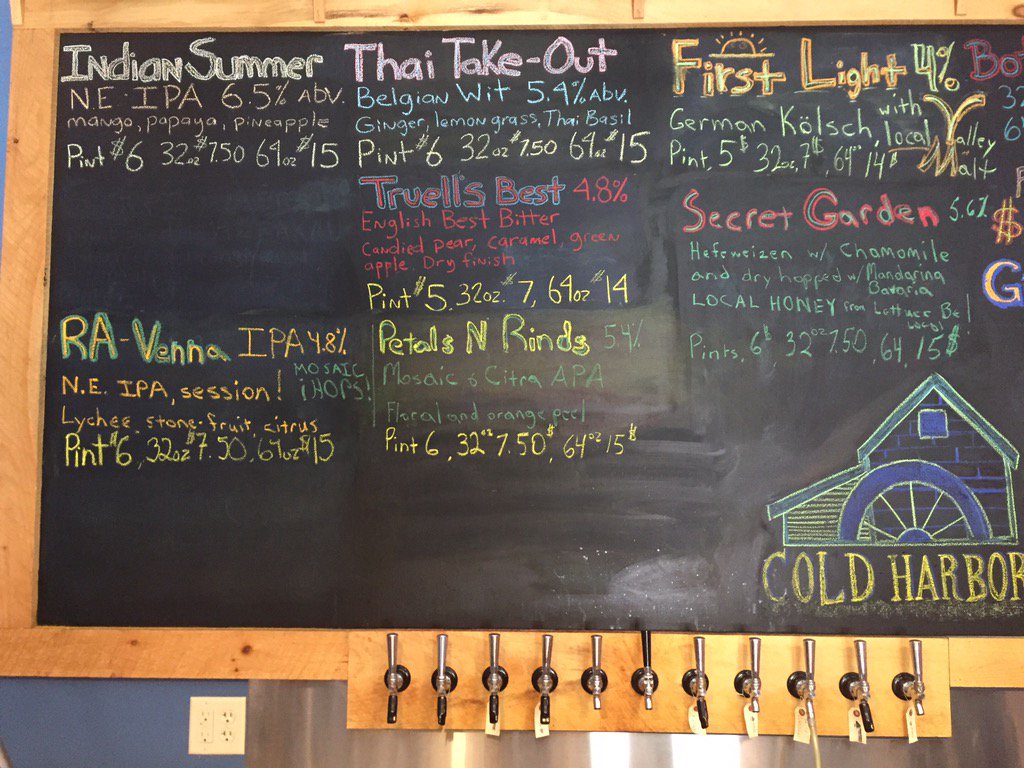 Indian Summer
N.E. IPA 6.5% ABV.
mango, papaya, pineapple
Pint $6 32oz $7.50 64oz $15
RA-Venna IPA 4.8%
N.E. IPA, session! MOSAIC ¡HOPS!
Lychee, stone-fruit, citrus
Pint $6, 32oz $7.50, 64oz $15
Thai Take-Out
Belgian Wit 5.4% ABV.
Ginger, lemongrass, Thai Basil
Pint $6 32oz $7.50 64oz $15
Truell's Best 4.8%
English Best Bitter
Candied pear, caramel, green
apple. Dry finish
Pint $5, 32oz. $7, 64oz $14
Petals N Rinds 5.4%
Mosaic & Citra APA
Floral and orange peel
Pint 6, 32oz 7.50$, 64oz 15$
First Light 4%
German Kölsch, with local Valley Malt
Pint, 5$ 32oz, 7$, 64oz 14$
Secret Garden 5.6%
Hefeweizen w/ Chamomile
and dry hopped w/ Mandarina
Bavaria
LOCAL HONEY from Lettuce Be
Local!
Pints, 6$ 32oz 7.50, 64, 15$
COLD HARBOR
Bo
32
6
$
G